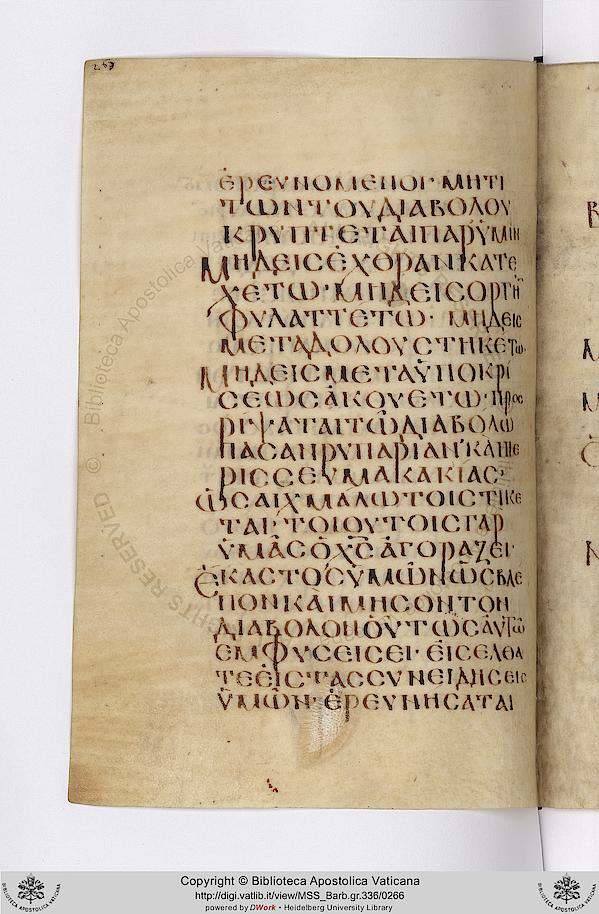 257
ἐρευνόμενοι· μήτι
τῶν τοῦ διαβόλου
κρυπτεται παρ ὑμῖν
Μηδεὶς ἔχθραν κατε
χέτω· μηδεὶς ὀργὴν
φυλαττέτω· μηδεὶς
μετὰ δόλου στηκέτω·
Μηδεὶς μετὰ ὑποκρί
σεως ἀκουέτω· προσ
ρίψαται τῷ διαβόλω
πᾶσαν ρυπαρίαν καὶ πε
ρισσευμα κακίας
ὡς αἰχμάλωτοι στήκε
ται· τοιούτοις γὰρ
ὑμᾶς ὁ χς ἀγοράζει·
Ἕκαστος ὑμῶν ὡς βλέ
πον καὶ μησον τὸν
διάβολον οὕτως αὐτῶ
ἐμφυσεισει· εἰσέλθα
τε εἰς τὰς συνειδήσεις
ὑμῶν· ἐρευνήσαται
Biblioteca Apostolica Vaticana
RIGHTS RESERVED ©
Copyright © Biblioteca Apostolica Vaticana
http://digi.vatlib.it/view/MSS_Barb.gr.336/0266
powered by DWork • Heidelberg University Library